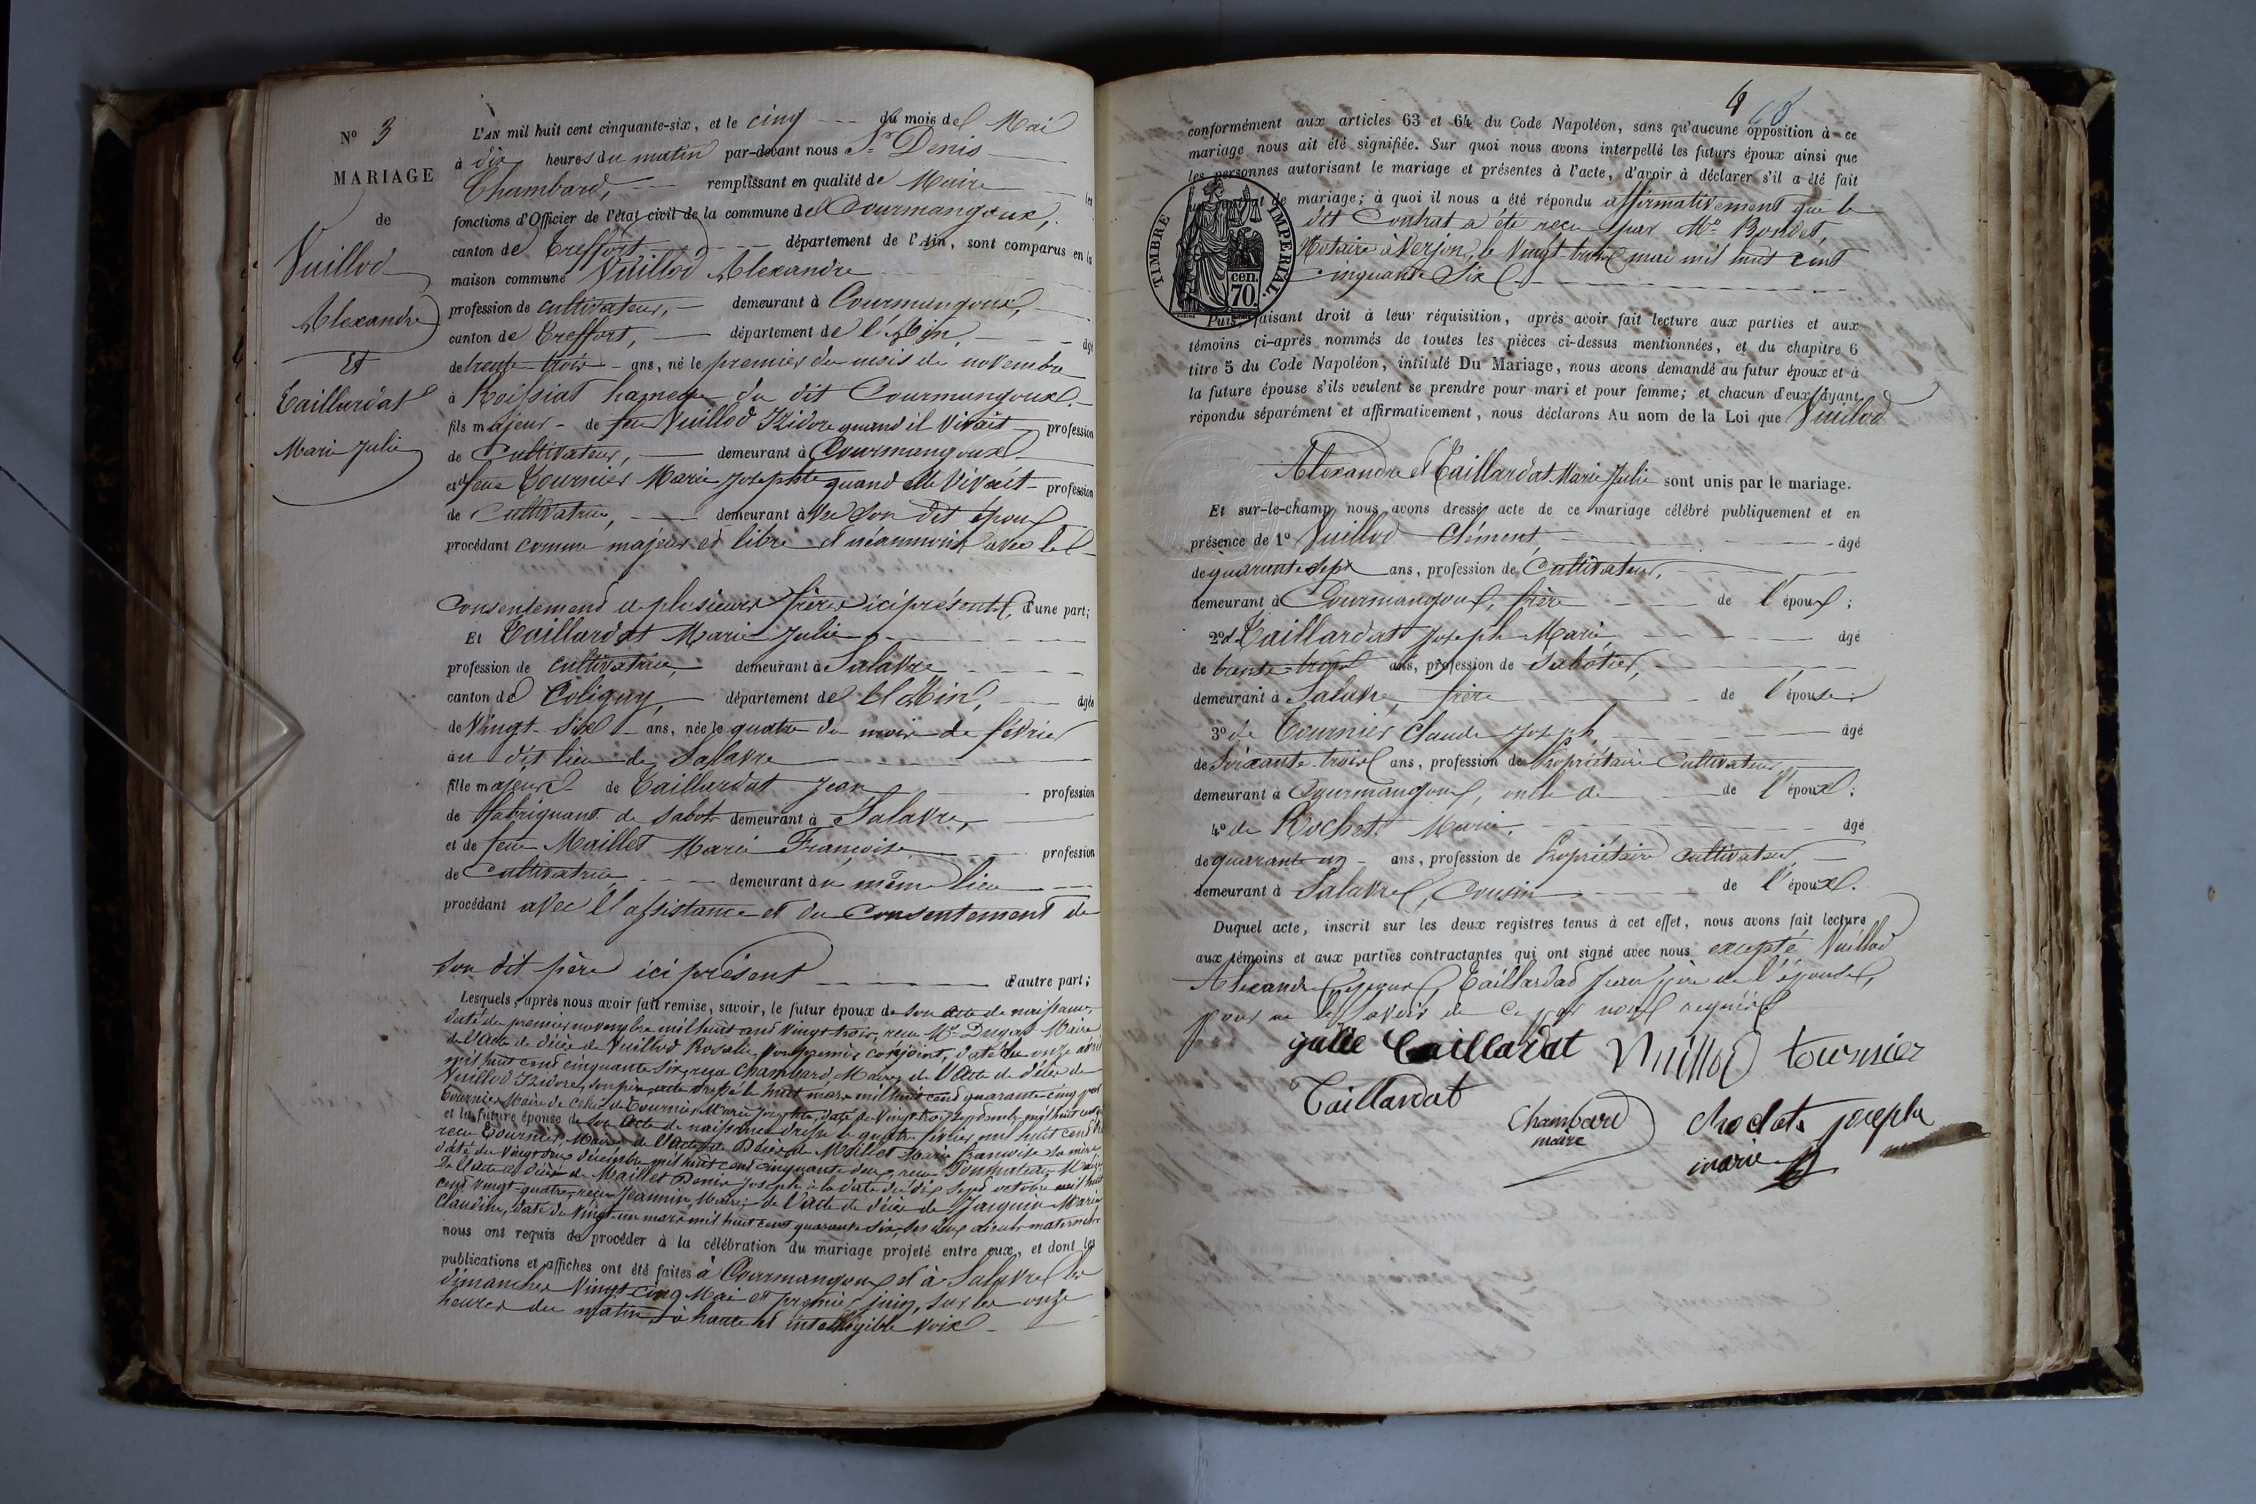 Nº 3
MARIAGE
de
Vuillod
Alexandre
Et
Taillardat
Marie Julie
L'AN mil huit cent cinquante-six, et le cinq du mois de Mai
à dix heures du matin par-devant nous Sr Denis
Chambard, remplissant en qualité de Maire les
fonctions d'Officier de l'état civil de la commune de Courmangoux,
canton de Treffort département de l'Ain, sont comparus en la
maison commune Vuillod Alexandre
profession de cultivateur, demeurant à Courmangoux,
canton de Treffort, département de l'Ain, âgé
de trente trois ans, né le premier du mois de novembre
à Roissiat hameau du dit Courmangoux
fils majeur de feu Vuillod Izidore quand il vivait profession
de Cultivateur, demeurant à Courmangoux
et feue Tournier Marie Josephte quand elle vivait profession
de Cultivatrice, demeurant à son dit époux
procédant comme majeur et libre et néanmoins avec le
Consentement de plusieurs frères ici présents, d'une part;
Et Taillardat Marie Julie
profession de cultivatrice, demeurant à Salavre
canton de Coligny, département de l'Ain, âgée
de Vingt-Six ans, née le quatre du mois de février
au dit lieu de Salavre
fille majeure de Taillardat Jean profession
de fabriquant de sabots demeurant à Salavre,
et de feue Maillet Marie Françoise profession
de Cultivatrice demeurant au même lieu
procédant avec l'assistance et du consentement de
son dit père ici présent d'autre part;
Lesquels, après nous avoir fait remise, savoir, le futur époux de son acte de naissance
daté du premier novembre mil huit cent vingt trois, reçu Mr Maire
de l'acte de décès de Vuillod Rosalie, son premier conjoint, daté du onze avril
mil huit cent cinquante six, reçu Chambard, Maire, de l'acte de décès de
Vuillod Izidore, son père, acte dressé le huit mars mil huit cent quarante cinq
Tournier Maire de celui de Tournier Marie Josephte, daté du Vingt mil huit cent
et la future épouse de son acte de naissance dressé le quatre février mil huit cent
reçu Tournier, Maire de l'acte de Décès de Maillet Marie françoise sa mère
daté du Vingt deux décembre mil huit cent cinquante deux, reçu Maire
De l'acte de décès de Maillet Denis Joseph à la date du dix sept octobre mil huit
cent vingt-quatre, reçu Jeannin, Maire, de l'acte de décès de Jacquin Marie
Claudine, daté du Vingt un mars mil huit cent quarante six, ses deux aïeuls maternels
nous ont requis de procéder à la célébration du mariage projeté entre eux, et dont les
publications et affiches ont été faites à Courmangoux et à Salavre les
dimanches Vingt cinq Mai et premier juin, sur les onze
heures du matin, à haute et intelligible voix
4
conformément aux articles 63 et 64 du Code Napoléon, sans qu'aucune opposition à ce
mariage nous ait été signifiée. Sur quoi nous avons interpellé les futurs époux ainsi que
les personnes autorisant le mariage et présentes à l'acte, d'avoir à déclarer s'il a été fait
de mariage; à quoi il nous a été répondu affirmativement que le
dit Contrat a été reçu par Me
Notaire à Verjon, le Vingt trois mai mil huit cent
cinquante Six
TIMBRE IMPERIAL.
cen.
70.
Puis, faisant droit à leur réquisition, après avoir fait lecture aux parties et aux
témoins ci-après nommés de toutes les pièces ci-dessus mentionnées, et du chapitre 6
titre 5 du Code Napoléon, intitulé Du Mariage, nous avons demandé au futur époux et à
la future épouse s'ils veulent se prendre pour mari et pour femme; et chacun d'eux ayant
répondu séparément et affirmativement, nous déclarons Au nom de la Loi que Vuillod
Alexandre et Taillardat Marie Julie sont unis par le mariage.
Et sur-le-champ nous avons dressé acte de ce mariage célébré publiquement et en
présence de 1º Vuillod Clément, âgé
de quarante sept ans, profession de Cultivateur,
demeurant à Courmangoux, frère de l'époux;
2º de Taillardat Joseph Marie âgé
de trente trois ans, profession de Sabotier,
demeurant à Salavre, frère de l'épouse;
3º de Tournier Claude Joseph âgé
de Soixante trois ans, profession de Propriétaire Cultivateur
demeurant à Courmangoux, oncle de l'époux;
4º de Rochet Marie. âgé
de quarante un ans, profession de Propriétaire cultivateur,
demeurant à Salavre, Cousin de l'époux.
Duquel acte, inscrit sur les deux registres tenus à cet effet, nous avons fait lecture
aux témoins et aux parties contractantes qui ont signé avec nous excepté Vuillod
Alexandre époux, Taillardat Jean père de l'épouse,
pour ne le savoir de ce par nous requis
julie Taillardat Vuillod tournier
Taillardat
Chambard
maire
chochat joseph
marie